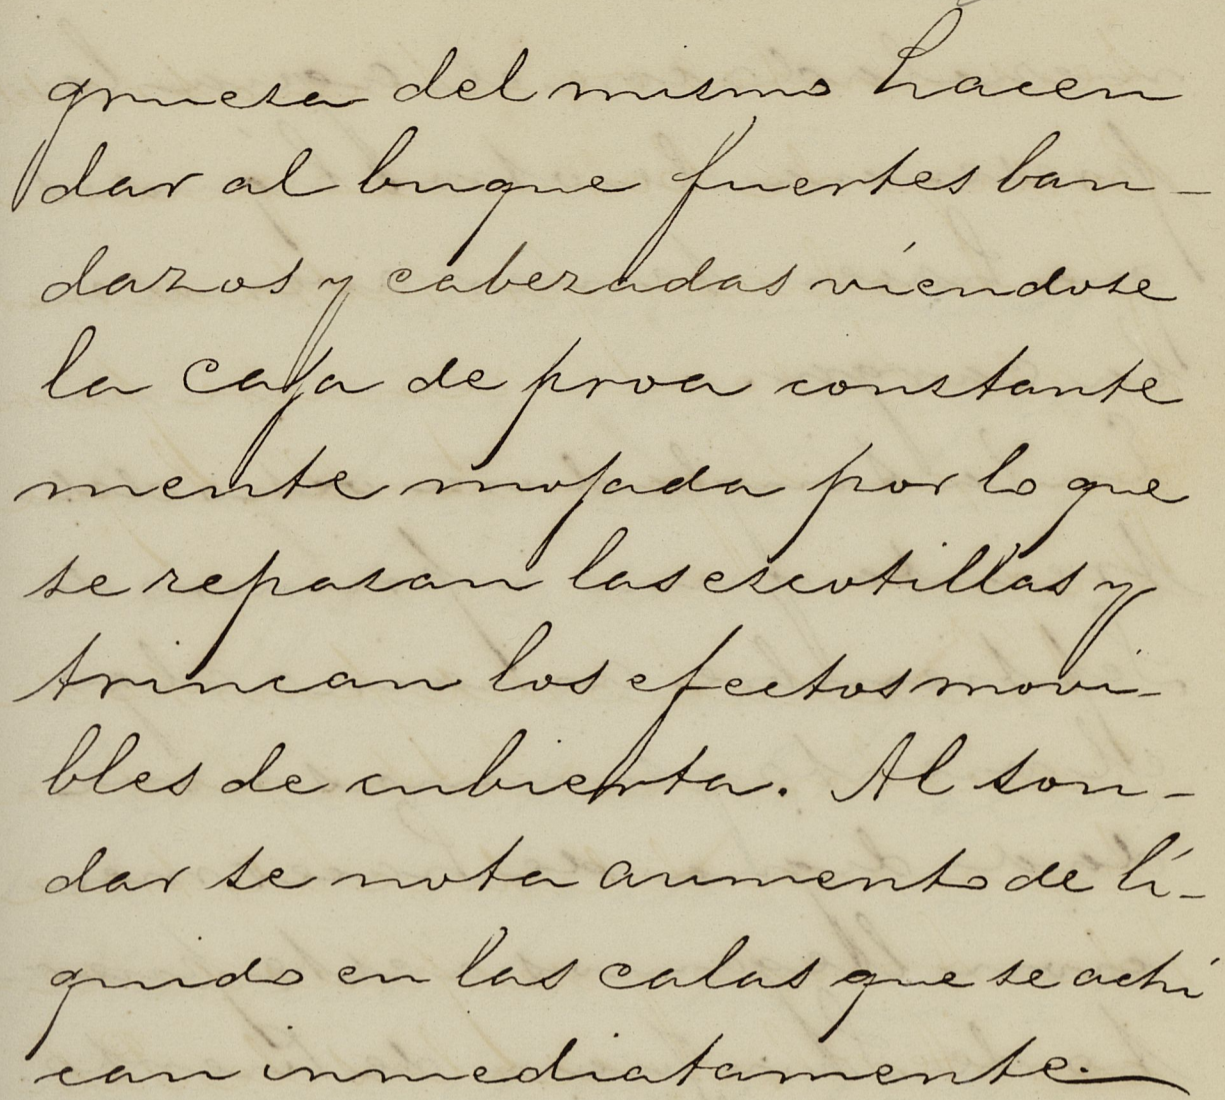 gruesa del mismo hacen
dar al buque fuertes ban-
dazos y cabezadas viéndose
la caja de proa constante
mente mojada por lo que
se repasan las escotillas y
trincan los efectos movi-
bles de cubierta. Al son-
dar se nota aumento de lí-
quido en las calas que se achi
can inmediatamente.